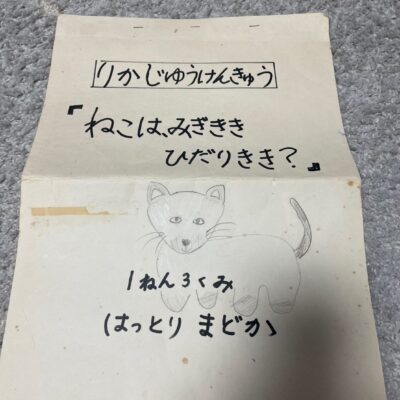 りかじゆうけんきゅう
『ねこは、みぎきき
ひだりきき？』
1ねん3くみ
はっとり まどか